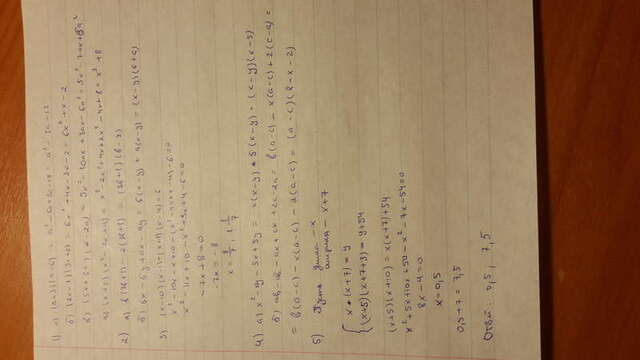 1) а) (a+3)(a-6) = a²-6a+3a-18 = a²-3a-18
б) (2x-1)(3x+2) = 6x²+4x-3x-2 = 6x²+x-2
в) (5x+3a)(x-2a) = 5x²-10ax+3ax-6a² = 5x²-7ax-6a²
г) (x+2)(x²-2x+4) = x³-2x²+4x+2x²-4x+8 = x³+8
2) а) b(3b+1)-2(3b+1) = (3b+1)(b-2)
б) 6x-6y+ax-ay = 6(x-y)+a(x-y) = (x-y)(6+a)
3) (x-10)(x-1)-(x+1)(x-4)=6
x²-10x-x+10-(x²-4x+x-4)-6=0
x²-11x+10-x²+3x+4-6=0
-7x+8=0
-7x=-8
x = 8/7, 1 1/7
4) а) x²-xy-5x+5y = x(x-y)-5(x-y) = (x-y)(x-5)
б) ab-cb-ax+cx+2c-2a = b(a-c)-x(a-c)+2(c-a) =
= b(a-c)-x(a-c)-2(a-c) = (a-c)(b-x-2)
5) Пусть длина - x
ширина - x+7
x·(x+7) = y
(x+5)(x+7+3) = y+54
(x+5)(x+10) = x(x+7)+54
x²+5x+10x+50-x²-7x-54=0
8x-4=0
x=0,5
0,5+7=7,5
Ответ: 0,5, 7,5